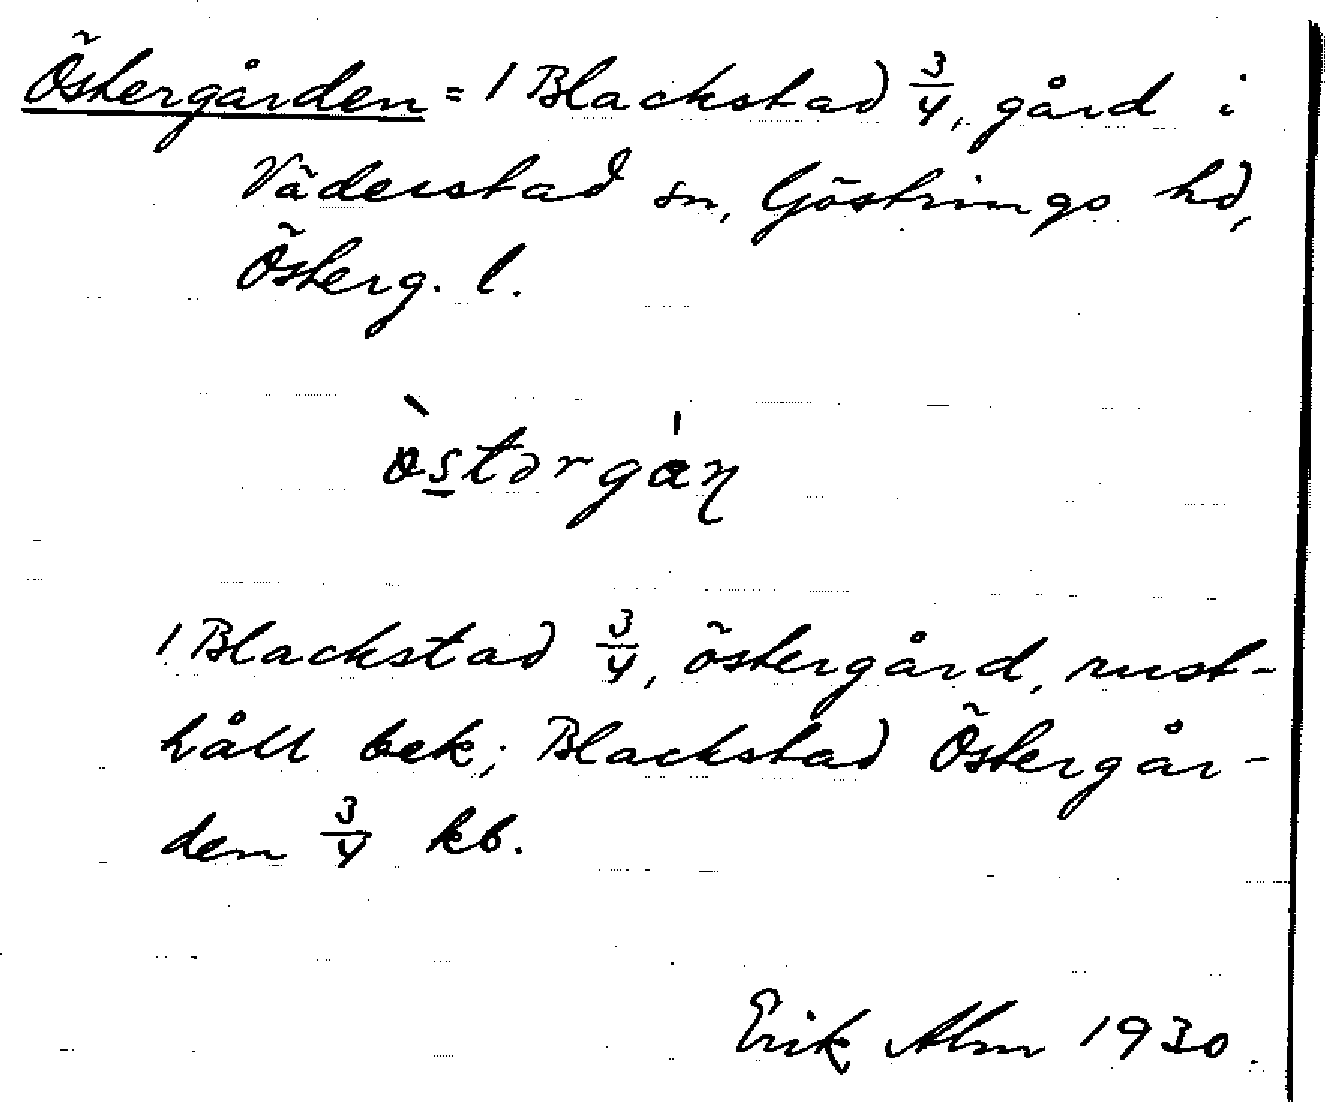 Östergården = 1 Blackstad 3/4, gård i
Väderstad sn, Göstrings hd,
Österg. l.
1 Blackstad 3/4, östergård, rust-
håll bek; Blackstad Östergår-
den 3/4 kb.
Erik Alm 1930.